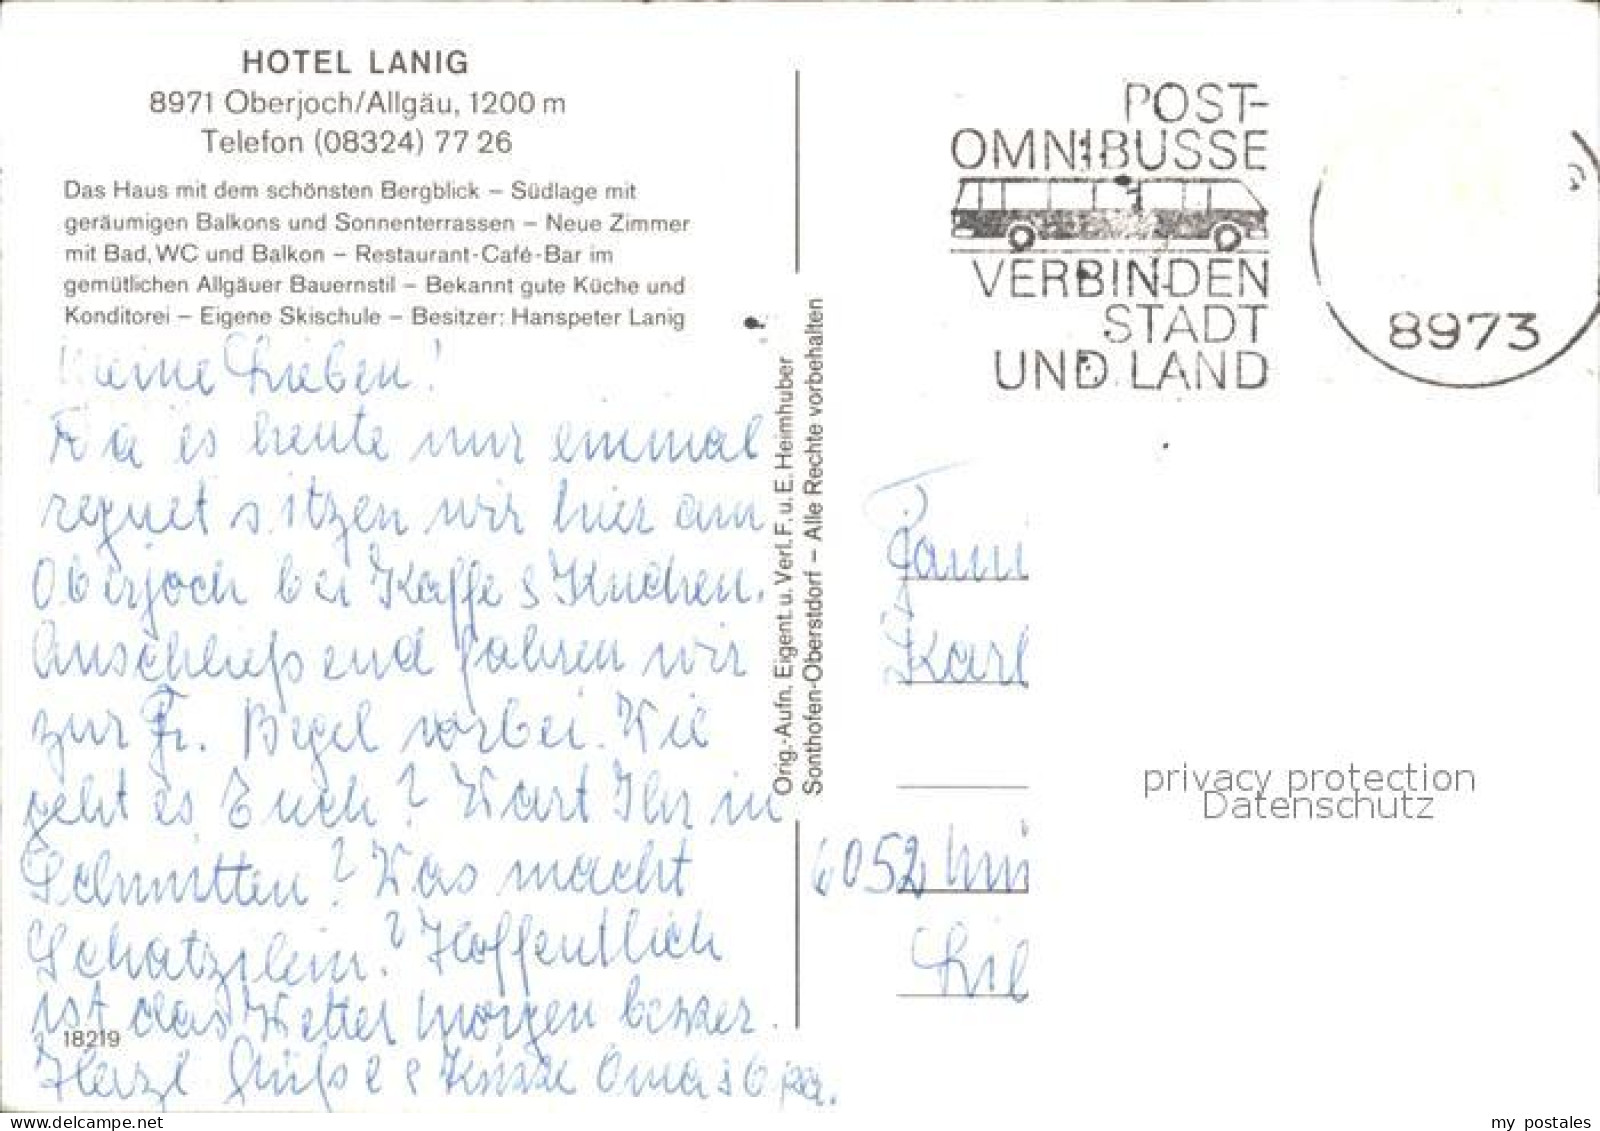 HOTEL LANIG
8971 Oberjoch/Allgäu, 1200 m
Telefon (08324) 77 26
Das Haus mit dem schönsten Bergblick – Südlage mit
geräumigen Balkons und Sonnenterrassen – Neue Zimmer
mit Bad, WC und Balkon – Restaurant-Café-Bar im
gemütlichen Allgäuer Bauernstil – Bekannt gute Küche und
Konditorei – Eigene Skischule – Besitzer: Hanspeter Lanig
Meine Lieben!
Da es heute nur einmal
regnet sitzen wir hier am
Oberjoch bei Kaffe & Kuchen.
Anschließend fahren wir
zur Fr. Begel vorbei. Wie
geht es Euch? Wart Ihr in
Schmitten? Was macht
Schatzilein? Hoffentlich
ist das Wetter morgen besser.
18219
Herzl Grüße & Küsse Oma & Opa.
Orig.-Aufn. Eigent. u. Verl. F. u. E. Heimhuber
Sonthofen-Oberstdorf – Alle Rechte vorbehalten
POST-
OMNIBUSSE
VERBINDEN
STADT
UND LAND
8973
Fami
Karl
6052
privacy protection
Datenschutz
my postales